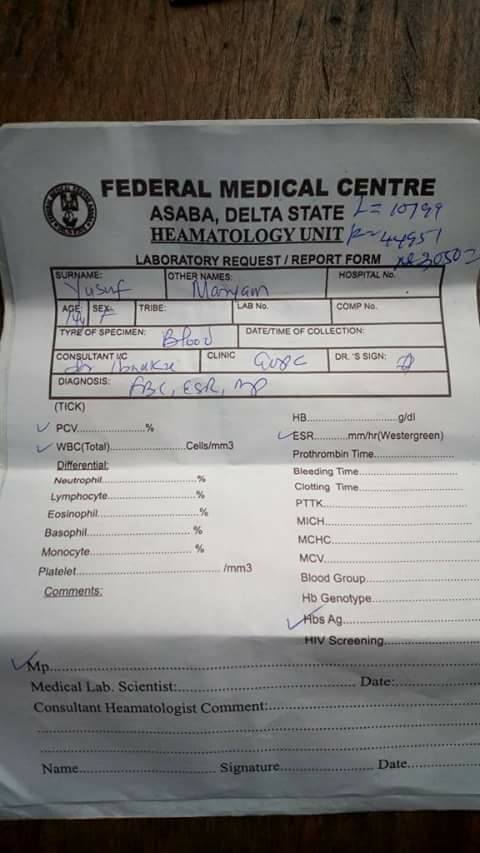 FEDERAL MEDICAL CENTRE
ASABA, DELTA STATE L= 10799
HEAMATOLOGY UNIT R= 44951
LABORATORY REQUEST / REPORT FORM
SURNAME: Yusuf OTHER NAMES: Maryam HOSPITAL No.
AGE 14y SEX: F TRIBE: LAB No. COMP No.
TYRE OF SPECIMEN: Blood DATE/TIME OF COLLECTION:
CONSULTANT I/C Dr CLINIC GOPC DR. 'S SIGN:
DIAGNOSIS: FBC, ESR, mp
(TICK)
HB..............................g/dl
✓ PCV......................%
✓ ESR..............mm/hr(Westergreen)
✓ WBC(Total)........................Cells/mm3
Prothrombin Time......................
Differential:
Bleeding Time.........................
Neutrophil..............................%
Clotting Time.........................
Lymphocyte..............................%
PTTK..............................
Eosinophil..............................%
MICH..............................
Basophil..............................%
MCHC..............................
Monocyte..............................%
MCV..............................
Platelet................................../mm3
Blood Group......................
Comments:
Hb Genotype......................
✓ Hbs Ag......................
HIV Screening......................
✓ Mp............................................................
Medical Lab. Scientist:........................................Date:....................
Consultant Heamatologist Comment:........................................
Name........................ Signature........................ Date....................